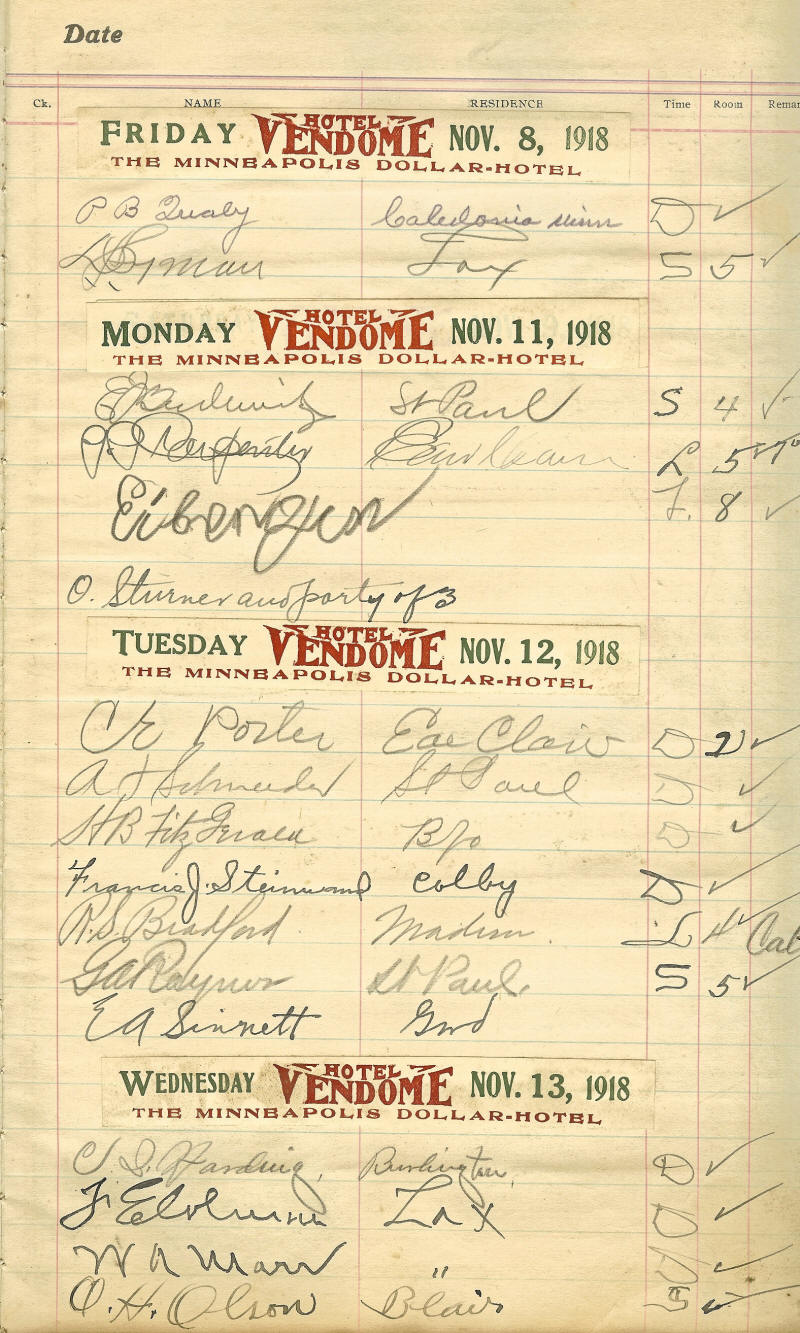 Date
Ck. NAME RESIDENCE Time Room Remar
FRIDAY HOTEL VENDOME NOV. 8, 1918
THE MINNEAPOLIS DOLLAR-HOTEL
P B Qualy Caledonia Minn D ✓
Lax S 5 ✓
MONDAY HOTEL VENDOME NOV. 11, 1918
THE MINNEAPOLIS DOLLAR-HOTEL
St Paul S 4 ✓
Carpenter L 5
8 ✓
O. Sturner and party of 3
TUESDAY HOTEL VENDOME NOV. 12, 1918
THE MINNEAPOLIS DOLLAR-HOTEL
C E Porter Eau Claire D 2 ✓
A J Schneider St Paul D ✓
H B FitzGerald D ✓
Francis J. Steinwand Colby D ✓
R. S. Bradford Madison L 4 ✓ Cal
G A Raynor St Paul. S 5 ✓
E A Sinnett
WEDNESDAY HOTEL VENDOME NOV. 13, 1918
THE MINNEAPOLIS DOLLAR-HOTEL
C S Harding, Burlington, D ✓
Lax D ✓
W A Marr " ✓
O. H. Olson Blair S ✓